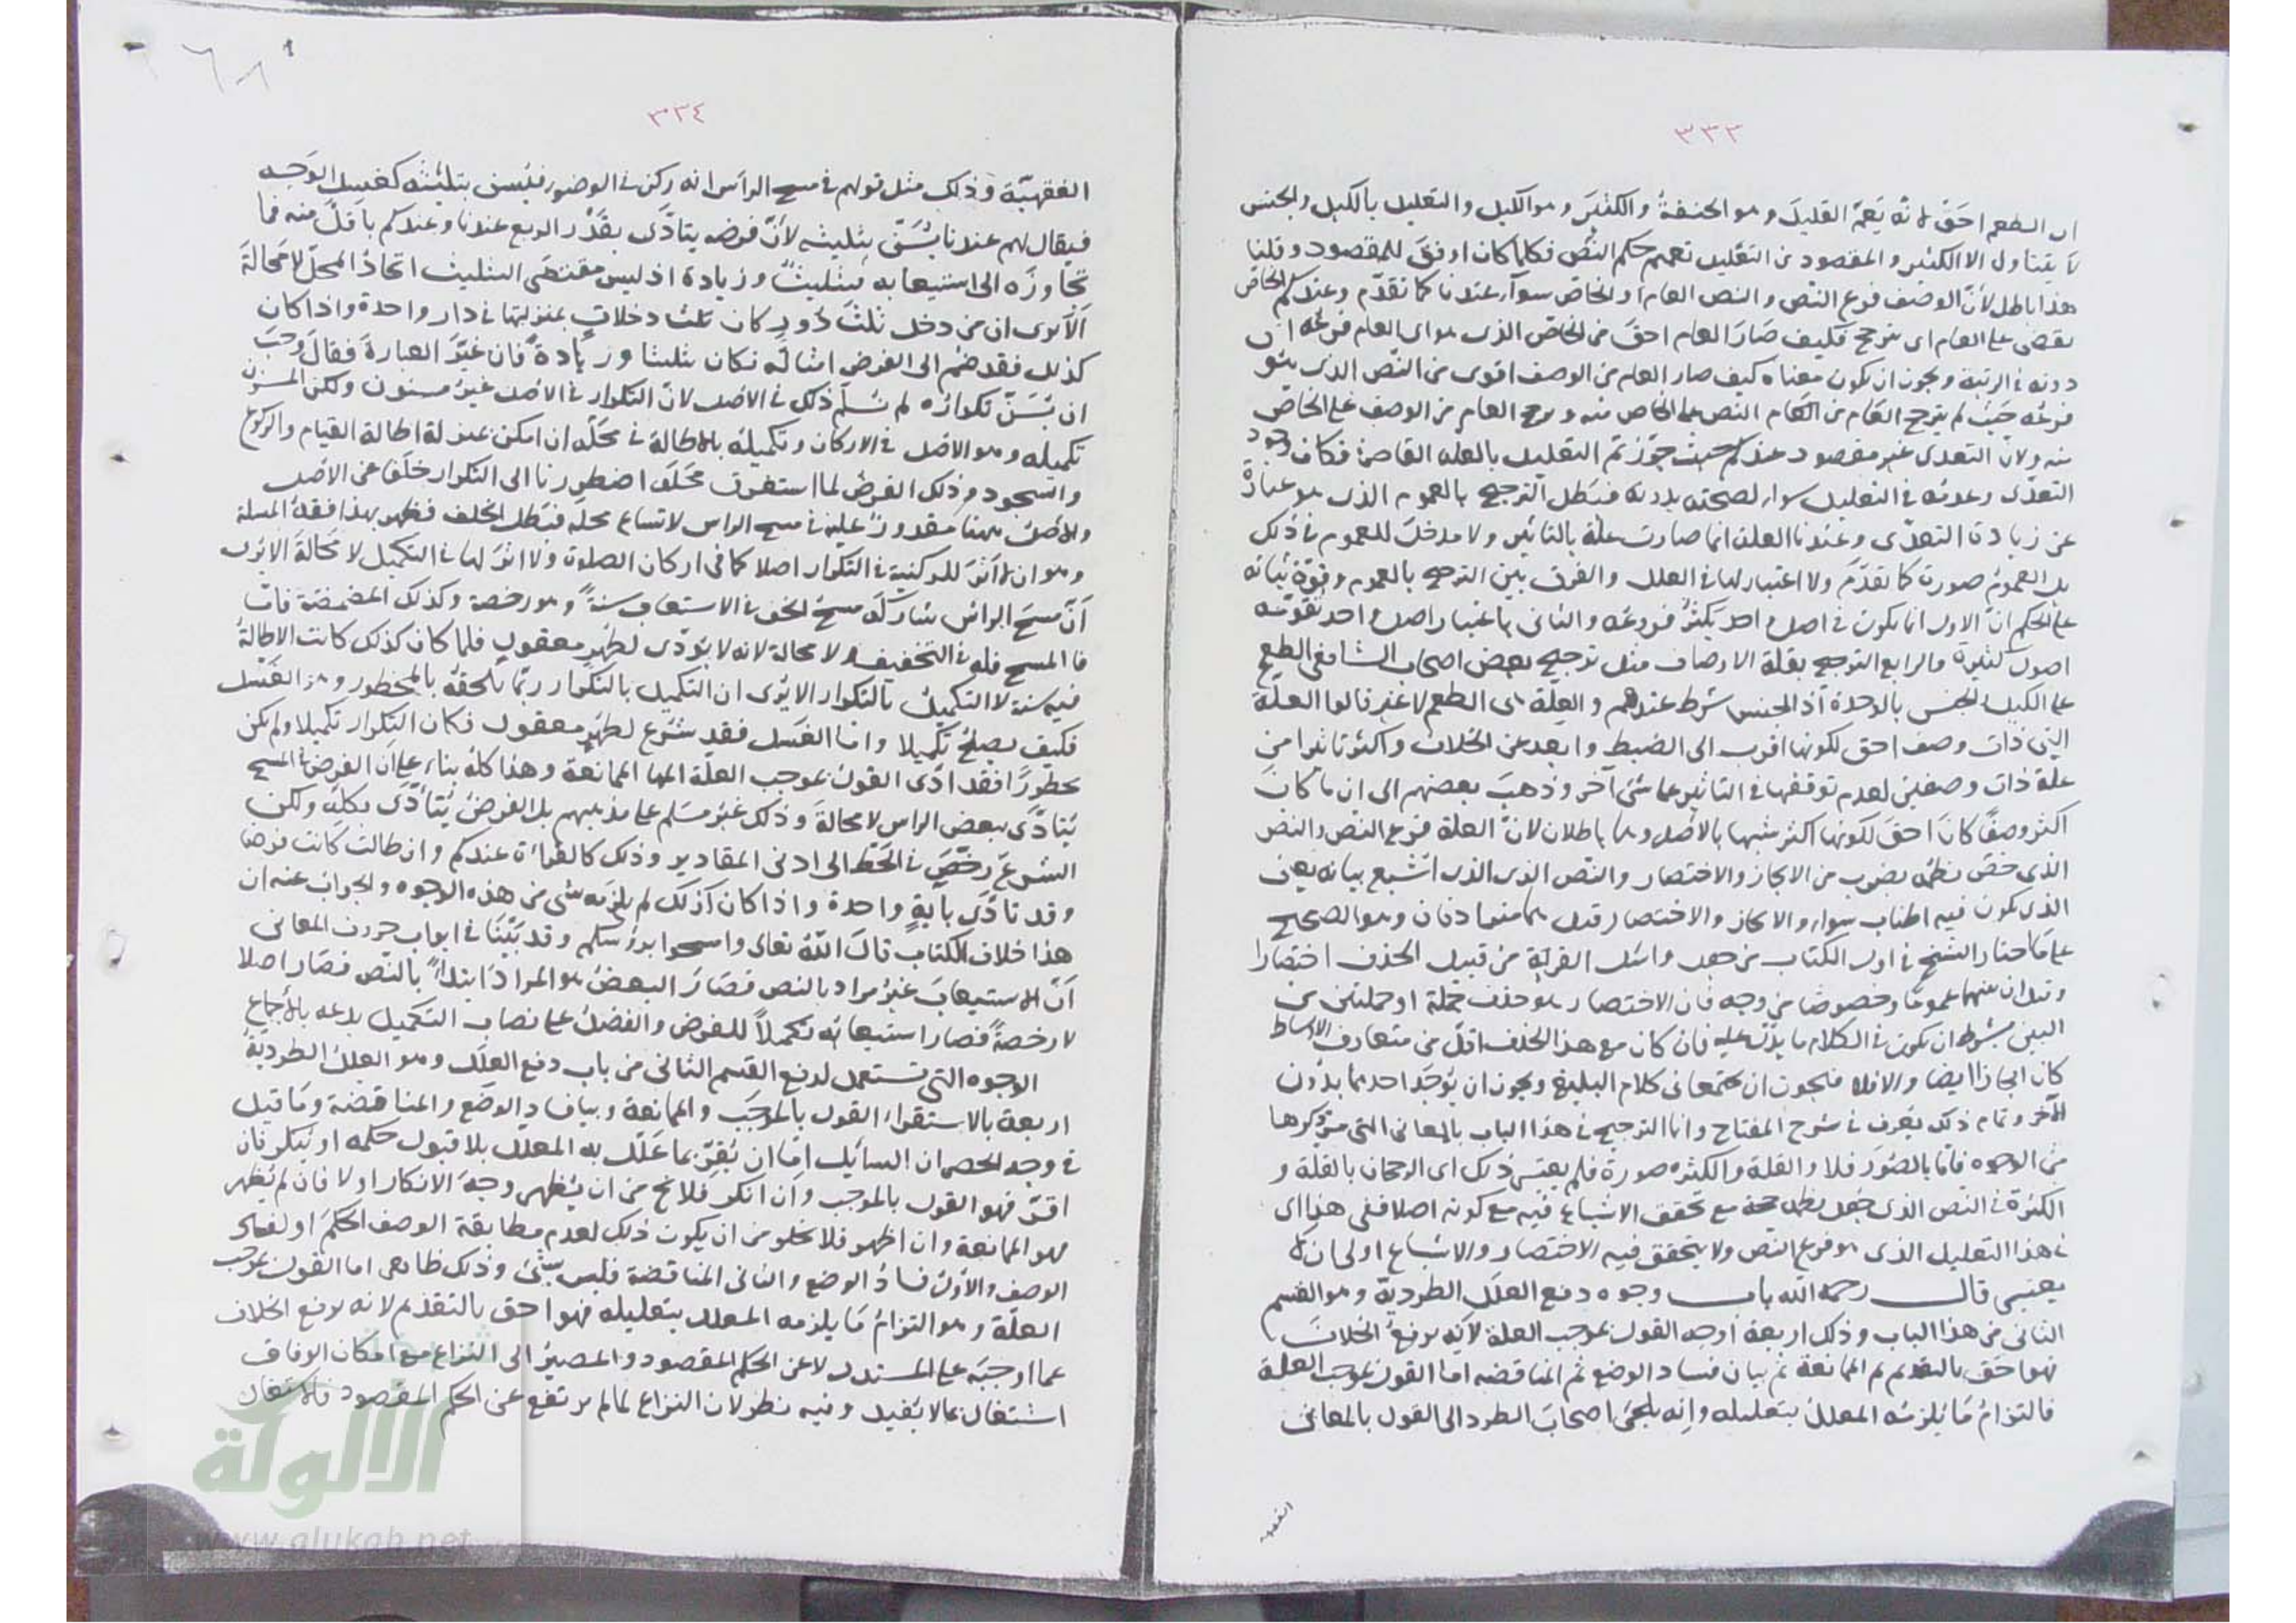 ٣٣٣
ان الطعم احق لانه يعم القليل وهو الحفنة والكثير وهو الكيل والتعليل بالكيل والجنس
لا يتناول الا الكثير والمقصود من التعليل تعميم حكم النص فكلما كان اوفق للمقصود وقلنا
هذا باطل لأن الوصف فرع النص والنص العام والخاص سوآء عندنا كما تقدم وعندكم الخاص
يقضى على العام اى يترجح فكيف صار العام احق من الخاص الذى هو اى العام فرعه ان
دونه فى الرتبة ويجوز ان يكون معناه كيف صار العام من الوصف اقوى من النص الذى هو
فرعه حيث لم يترجح العام من العام النص على الخاص منه ويرجح العام من الوصف على الخاص
منه ولان التعدى غير مقصود عندكم حيث جوزتم التعليل بالعلة القاصرة فكان وجود
التعدى وعدمه فى التعليل سواء لصحته بدونه فبطل الترجيح بالعموم الذى هو عبارة
عن زيادة التعدى وعندنا العلة انما صارت علة بالتاثير ولا مدخل للعموم فى ذلك
بل العموم صورة كما تقدم ولا اعتبار لها فى العلل والفرق بين الترجيح بالعموم وقوة ثباته
على الحكم ان الاول انما يكون فى اصل واحد يكثر فروعه والثانى باعتبار اصل واحد تقومه
اصول كثيرة والرابع الترجيح بقلة الاوصاف مثل ترجيح بعض اصحاب الشافعى الطعم
على الكيل الجنس بالوحدة اذ الجنس شرط عندهم والعلة هى الطعم لا غير قالوا العلة
التى ذات وصف احق لكونها اقرب الى الضبط وابعد عن الخلاف واكثر تاثيرا من
علة ذات وصفين لعدم توقفها فى التاثير على شئ آخر وذهب بعضهم الى ان ما كان
اكثر وصفا كان احق لكونها اكثر شبها بالاصل وهما باطلان لان العلة فرع النص والنص
الذى خص نظمه بضرب من الايجاز والاختصار والنص الذى الذى اشبع بيانه يعنى
الذى يكون فيه اطناب سواء والايجاز والاختصار قيل هما مترادفان وهو الصحيح
على ما اختار الشيخ فى اول الكتاب من جعل واسئل القرية من قبيل الحذف اختصارا
وقيل ان بينهما عموما وخصوصا من وجه فان الاختصار هو حذف جملة او جملتين من
البين بشرط ان يكون فى الكلام ما يدل عليه فان كان مع هذا الحذف اقل من متعارف الاوساط
كان ايجازا ايضا والا فلا فيجوز ان يجتمعا فى كلام البليغ ويجوز ان يوجد احدهما بدون
الآخر وتمام ذلك يعرف فى شرح المفتاح وانما الترجيح فى هذا الباب بالمعانى التى مر ذكرها
من الوجوه فاما بالصور فلا والقلة والكثرة صورة فلم يعتبر ذلك اى الرجحان بالقلة و
الكثرة فى النص الذى جعل نظمه حجة مع تحقق الاشباع فيه مع كونه اصلا ففى هذا اى
فى هذا التعليل الذى هو فرع النص ولا يتحقق فيه الاختصار والاشباع اولى ان لا
يعتبر قال رحمه الله باب وجوه دفع العلل الطردية وهو القسم
الثانى من هذا الباب وذلك اربعة اوجه القول بموجب العلة لانه يرفع الخلاف
فهو احق بالتقديم ثم الممانعة ثم بيان فساد الوضع ثم المناقضه اما القول بموجب العلة
فالتزام ما يلزمه المعلل بتعليله وانه يلجئ اصحاب الطرد الى القول بالمعانى
الفقهية
٣٣٤
الفقهية وذلك مثل قولهم فى مسح الراس انه ركن فى الوضوء فيسن بتثليثه كغسل الوجه
فيقال لهم عندنا يسن تثليثه لان فرضه يتادى بقدر الربع عندنا وعندكم باقل منه فما
تجاوزه الى استيعابه فتثليث وزيادة اذ ليس مقتضى التثليث اتحاد المحل لا محالة
الا يرى ان من دخل ثلث دور كان ثلث دخلات بمنزلتها فى دار واحدة واذا كان
كذلك فقد ضم الى الفرض امثاله فكان تثليثا وزيادة فان غير العبارة فقال وجب
ان يسن تكراره لم نسلم ذلك فى الاصل لان التكرار فى الاصل غير مسنون ولكن المسنون
تكميله وهو الاصل فى الاركان وتكميله بالاطالة فى محله ان امكن بمنزلة اطالة القيام والركوع
والسجود وذلك الفرض لما استغرق محله اضطررنا الى التكرار خلفا عن الاصل
والاصل ههنا مقدور عليه فى مسح الراس لاتساع محله فبطل الخلف فظهر بهذا فقه المسئلة
وهو ان لا اثر للركنية فى التكرار اصلا كما فى اركان الصلوة ولا اثر لها فى التكميل لا محالة الا يرى
أن مسح الراس شاركه مسح الخف فى الاستيعاب سنة وهو رخصة وكذلك المضمضة فأما
فا المسح فله فى التخفيف ولا محالة لانه لا يؤدى لطهر معقول فلما كان كذلك كانت الاطالة
فيه سنة لا التكميل بالتكرار الا يرى ان التكميل بالتكرار ربما يلحقه بالمحظور وهو الغسل
فكيف يصلح تكميلا واما الغسل فقد شرع لطهر معقول فكان التكرار تكميلا ولم يكن
محظورا فقد ادى القول بموجب العلة الى الممانعة وهذا كله بناء على ان الفرض فى المسح
يتادى ببعض الراس لا محالة وذلك غير مسلم على مذهبهم بل الفرض يتأدى بكله ولكن
الشرع رخص فى الحط الى ادنى المقادير وذلك كالقراءة عندكم وان طالت كانت فرضا
وقد تأدى بآية واحدة واذا كان كذلك لم يلزمه شئ من هذه الوجوه والجواب عنه ان
هذا خلاف الكتاب قال الله تعالى وامسحوا برؤسكم وقد بينا فى ابواب حروف المعانى
أن الاستيعاب غير مراد بالنص فصار البعض هو المراد ابتداءً بالنص فصار اصلا
لا رخصة فصار استيعابه تكميلاً للفرض والفضل على نصاب التكميل بدعه بالاجماع
الوجوه التى تستعمل لدفع القسم الثانى من باب دفع العلل وهو العلل الطردية
اربعة بالاستقراء القول بالموجب والممانعة وبيان فساد الوضع والمناقضة وما قيل
فى وجه الحصر ان السائل اما ان يقر بما علل به المعلل بلا قبول حكمه او ينكر فان
اقر فهو القول بالموجب وان انكر فلا يخ من ان يظهر وجه الانكار او لا فان لم يظهر
فهو الممانعة وان اظهر فلا يخلو من ان يكون ذلك لعدم مطابقة الوصف الحكم او لفساد
الوصف والاول فساد الوضع والثانى المناقضة فليس بشئ وذلك ظاهر اما القول بموجب
العلة وهو التزام ما يلزمه المعلل بتعليله فهو احق بالتقديم لانه يرفع الخلاف
عما اوجبه على المستدل لا عن الحكم المقصود والمصير الى النزاع مع امكان الوفاق
اشتغال بما لا يفيد وفيه نظر لان النزاع لما لم يرتفع عن الحكم المقصود فالاشتغال
الألوكة
www.alukah.net